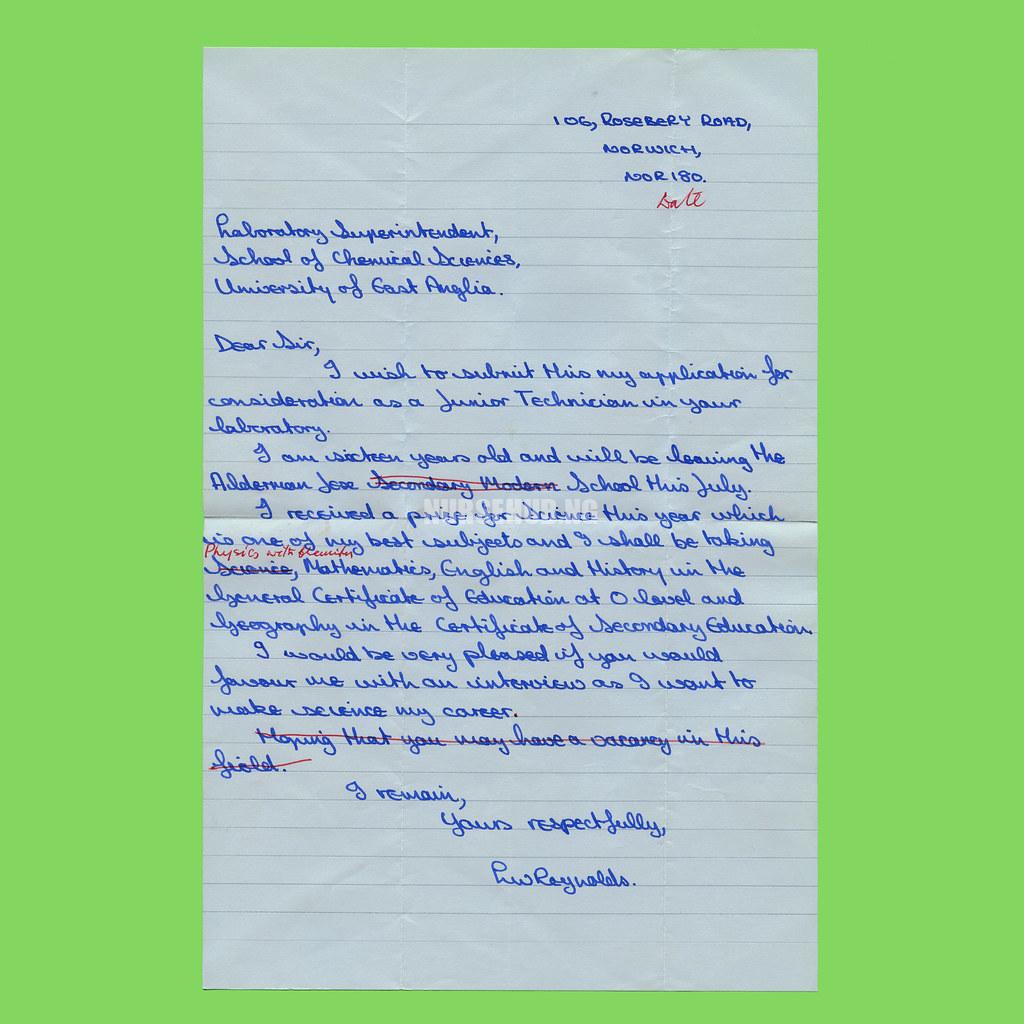 106, ROSEBERY ROAD,
NORWICH,
NOR 180.
Date
Laboratory Superintendent,
School of Chemical Sciences,
University of East Anglia.
Dear Sir,
I wish to submit this my application for
consideration as a Junior Technician in your
laboratory.
I am sixteen years old and will be leaving the
Alderman Jex Secondary Modern School this July.
I received a prize for Science this year which
NURSEHUB.NG
is one of my best subjects and I shall be taking
Physics with Chemistry
Science, Mathematics, English and History in the
General Certificate of Education at O level and
Geography in the Certificate of Secondary Education.
I would be very pleased if you would
favour me with an interview as I want to
make science my career.
Hoping that you may have a vacancy in this
field.
I remain,
Yours respectfully,
LWReynolds.